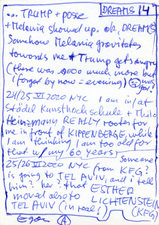 ... TRUMP + posse DREAMS 14
+ Melania showed up. ok, DREAMS
Somehow Melania gravitates
towards me + Trump gets angry
(there was sooo much more but
forgot by now = evening)
24/25 VI 2020 NYC I am in/at
Städel Kunsthochschule +
REALLY roots for
me in front of KIPPENBERGER, while
I am thinking I am too old for
that w/ my 60 years.
25/26 VI 2020 NYC Someone from KFG?
is going to TEL AVIV and i tell
him/her that ESTHER
moved also to LICHTENSTEIN
TEL AVIV (in real) (KFG)